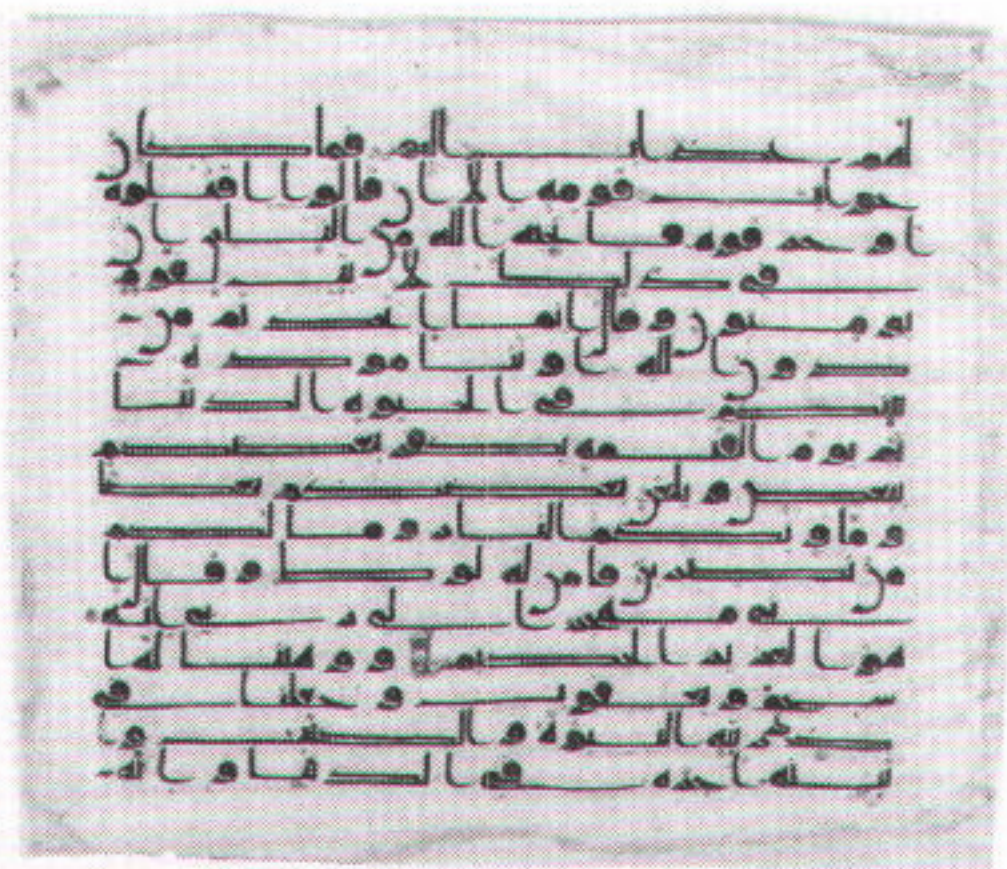 لهم عذاب اليم فما كان
جواب قومه الا ان قالوا اقتلوه
او حرقوه فانجيه الله من النار ان
في ذلك لايت لقوم
يومنون وقال انما اتخذتم من
دون الله اوثنا مودة
بينكم في الحيوة الدنيا
ثم يوم القيمة يكفر بعضكم
ببعض ويلعن بعضكم بعضا
وماويكم النار وما لكم
من نصرين فامن له لوط وقال ا
ني مهجر الى ربي انه
هو العزيز الحكيم ووهبنا له ا
سحق ويعقوب وجعلنا في
ذريته النبوة والكتب وا
تينه اجره في الدنيا وانه